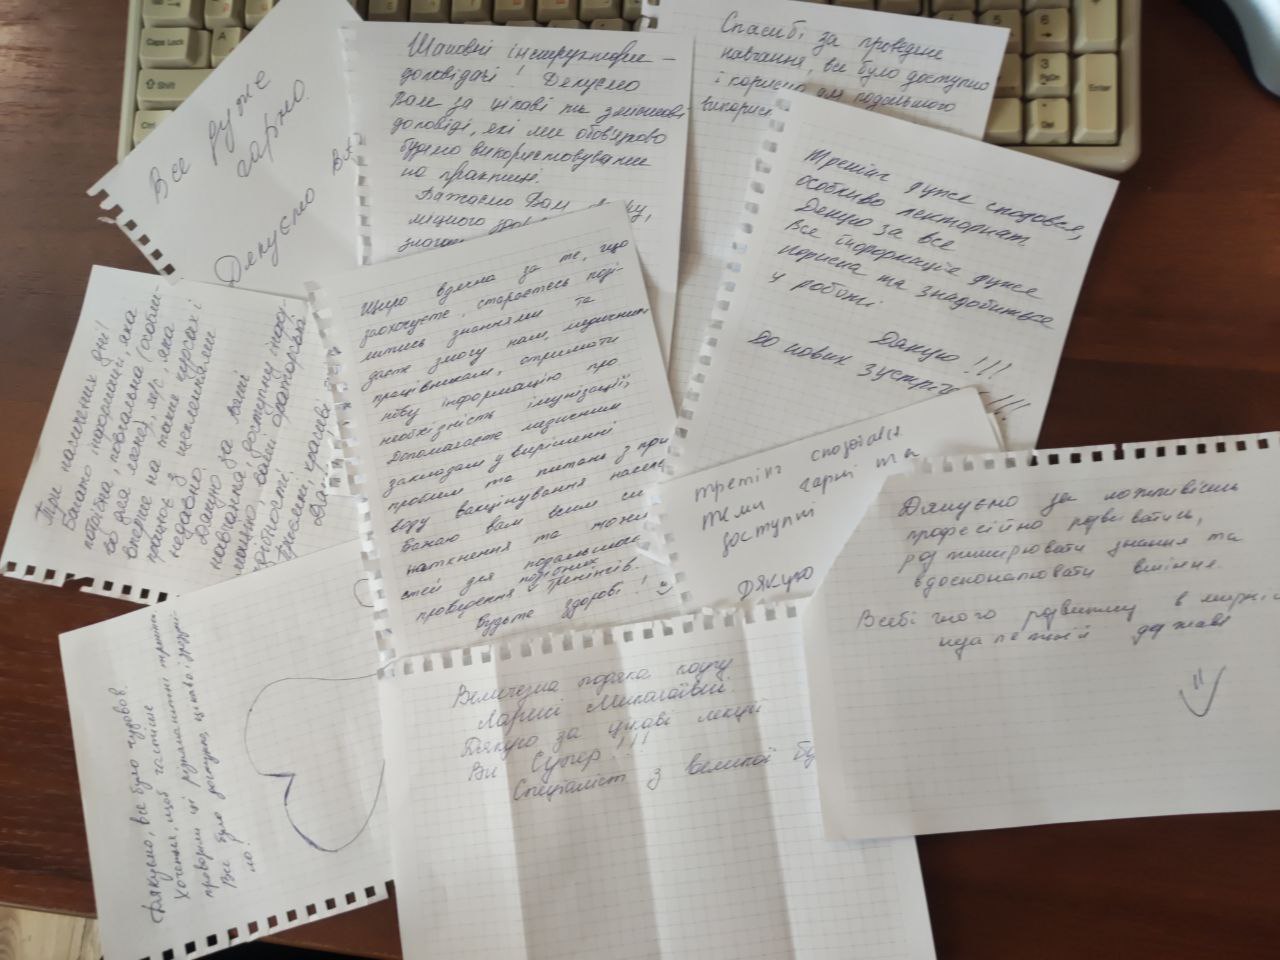 Caps Lock
A
Shift
5
6
3
PgDn
Del
Enter
Все дуже
гарно.
Дякуємо
Шановні інструктори –
доповідачі! Дякуємо
Вам за цікаві та змістовні
доповіді, які ми обов'язково
будемо використовувати
на практиці.
Бажаємо Вам
міцного
Спасибі за проведене
навчання, все було доступно
і корисно для подальшого
Тренінг дуже сподобався,
особливо лекторіат
Дякую за все
Вся інформація дуже
корисна та знадобиться
у роботі
Дякую!!!
До нових зустрічей!!!
Щиро вдячна за те, що
заохочуєте, стараєтесь поді-
литись знаннями та
даєте змогу нам, медичним
працівникам, отримати
нову інформацію про
необхідність імунізації,
Допомагаєте медичним
закладам у вирішенні
проблем та питань з при
воду вакцинування насел
Бажаю вам всім си
натхнення та можли
стей для подальшого
проведення подібних тренінгів.
Будьте здорові! :)
Три насичених дні!
Багато інформації, яка
потрібна, повчальна (особли-
во для мене), м/с, яка
вперше на таких курсах і
працює з
недавно.
Дякую за вашу
навчання, доступну інфор-
мацію, ваші ораторські
здібності.
Приємні, красиві
тренінг сподобався
теми гарні та
доступні
Дякую
Дякуємо за можливість
професійно розвиватись,
розширювати знання та
вдосконалювати вміння.
Всебічного розвитку в мирній
незалежній державі
Дякуємо, все було чудово.
Хочеться, щоб частіше
проводили ці різноманітні тренінги
Все було доступно, цікаво і зрозумі-
ло!
Величезна подяка
Ларисі Миколаївні.
Дякую за цікаві лекції
Ви Супер!!!
Спеціаліст з великої бу